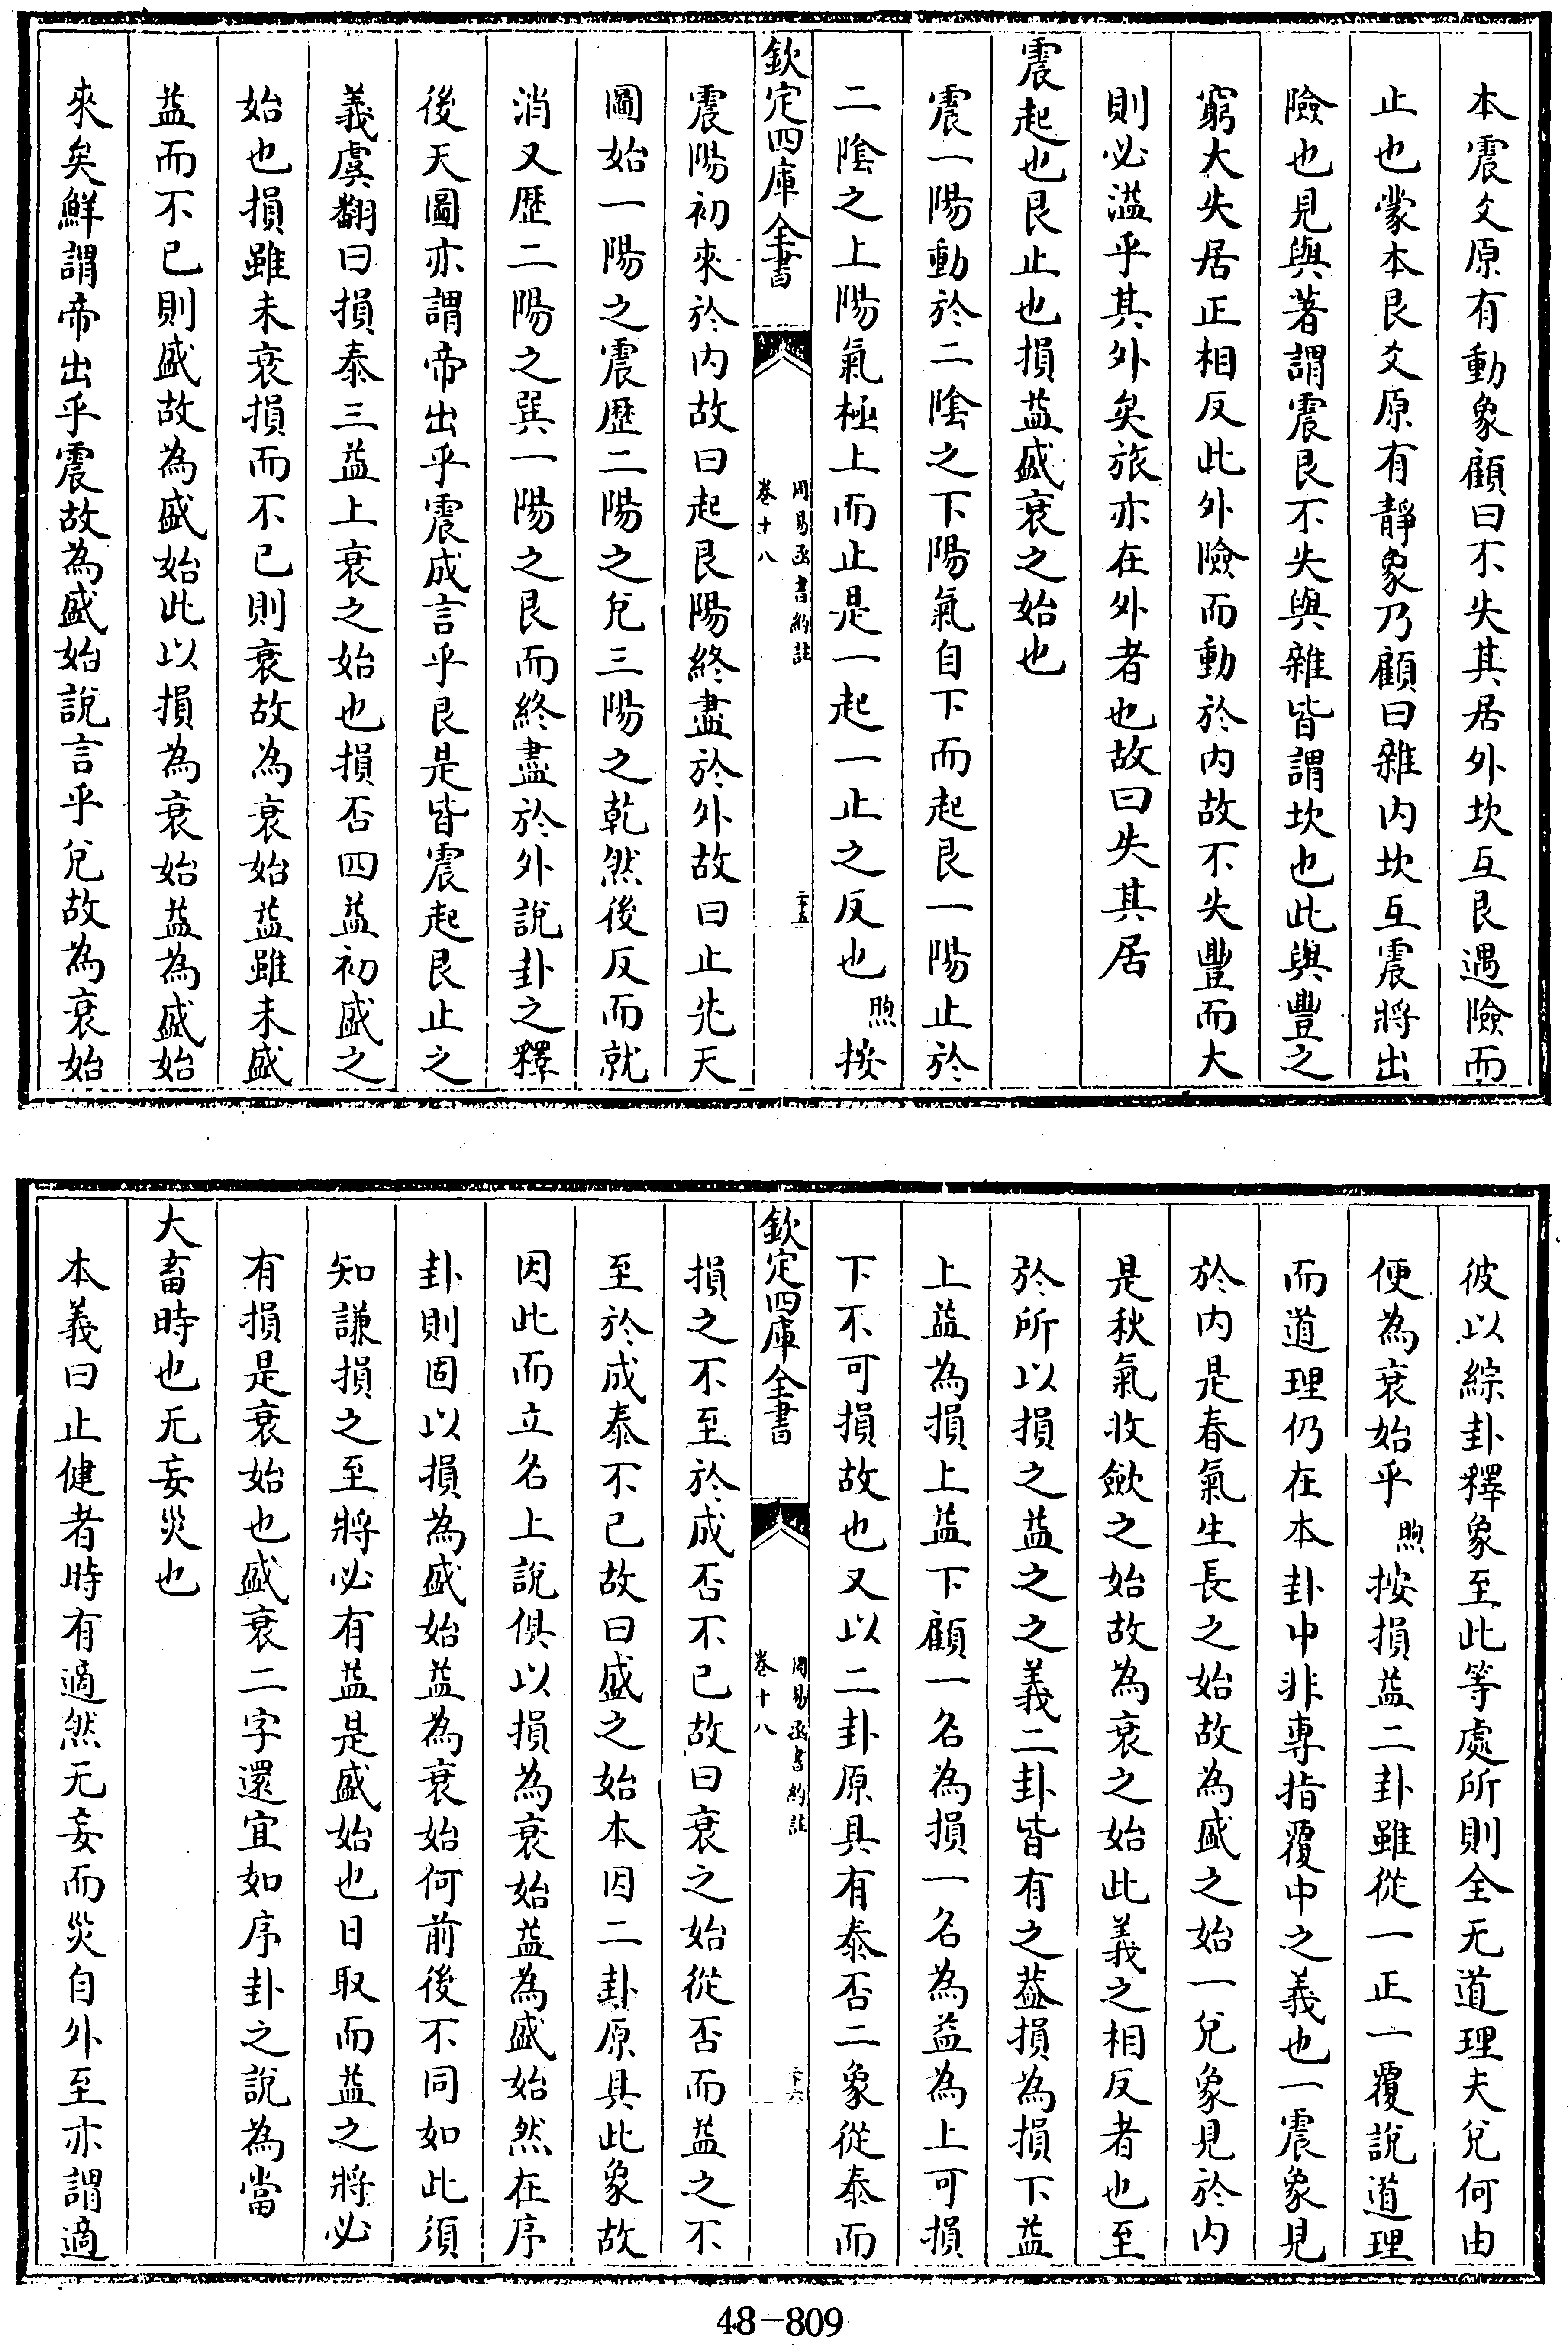 本震爻原有動象顧曰不失其居外坎互艮遇險而
止也蒙本艮爻原有靜象乃顧曰雜內坎互震將出
險也見與著謂震艮不失與雜皆謂坎也此與豐之
窮大失居正相反此外險而動於內故不失豐而大
則必溢乎其外矣旅亦在外者也故曰失其居
震起也艮止也損益盛衰之始也
震一陽動於二陰之下陽氣自下而起艮一陽止於
二陰之上陽氣極上而止是一起一止之反也煦按
欽定四庫全書
周易函書約註
卷十八
二十五
震陽初來於內故曰起艮陽終盡於外故曰止先天
圖始一陽之震歷二陽之兌三陽之乾然後反而就
消又歷二陽之巽一陽之艮而終盡於外說卦之釋
後天圖亦謂帝出乎震成言乎艮是皆震起艮止之
義虞翻曰損泰三益上衰之始也損否四益初盛之
始也損雖未衰損而不已則衰故為衰始益雖未盛
益而不已則盛故為盛始此以損為衰始益為盛始
來矣鮮謂帝出乎震故為盛始說言乎兌故為衰始
彼以綜卦釋象至此等處所則全无道理夫兌何由
便為衰始乎煦按損益二卦雖從一正一覆說道理
而道理仍在本卦中非專指覆中之義也一震象見
於內是春氣生長之始故為盛之始一兌象見於內
是秋氣收斂之始故為衰之始此義之相反者也至
於所以損之益之之義二卦皆有之蓋損為損下益
上益為損上益下顧一名為損一名為益為上可損
下不可損故也又以二卦原具有泰否二象從泰而
欽定四庫全書
周易函書約註
卷十八
二十六
損之不至於成否不已故曰衰之始從否而益之不
至於成泰不已故曰盛之始本因二卦原具此象故
因此而立名上說俱以損為衰始益為盛始然在序
卦則固以損為盛始益為衰始何前後不同如此須
知謙損之至將必有益是盛始也日取而益之將必
有損是衰始也盛衰二字還宜如序卦之說為當
大畜時也无妄災也
本義曰止健者時有適然无妄而災自外至亦謂適
48-809